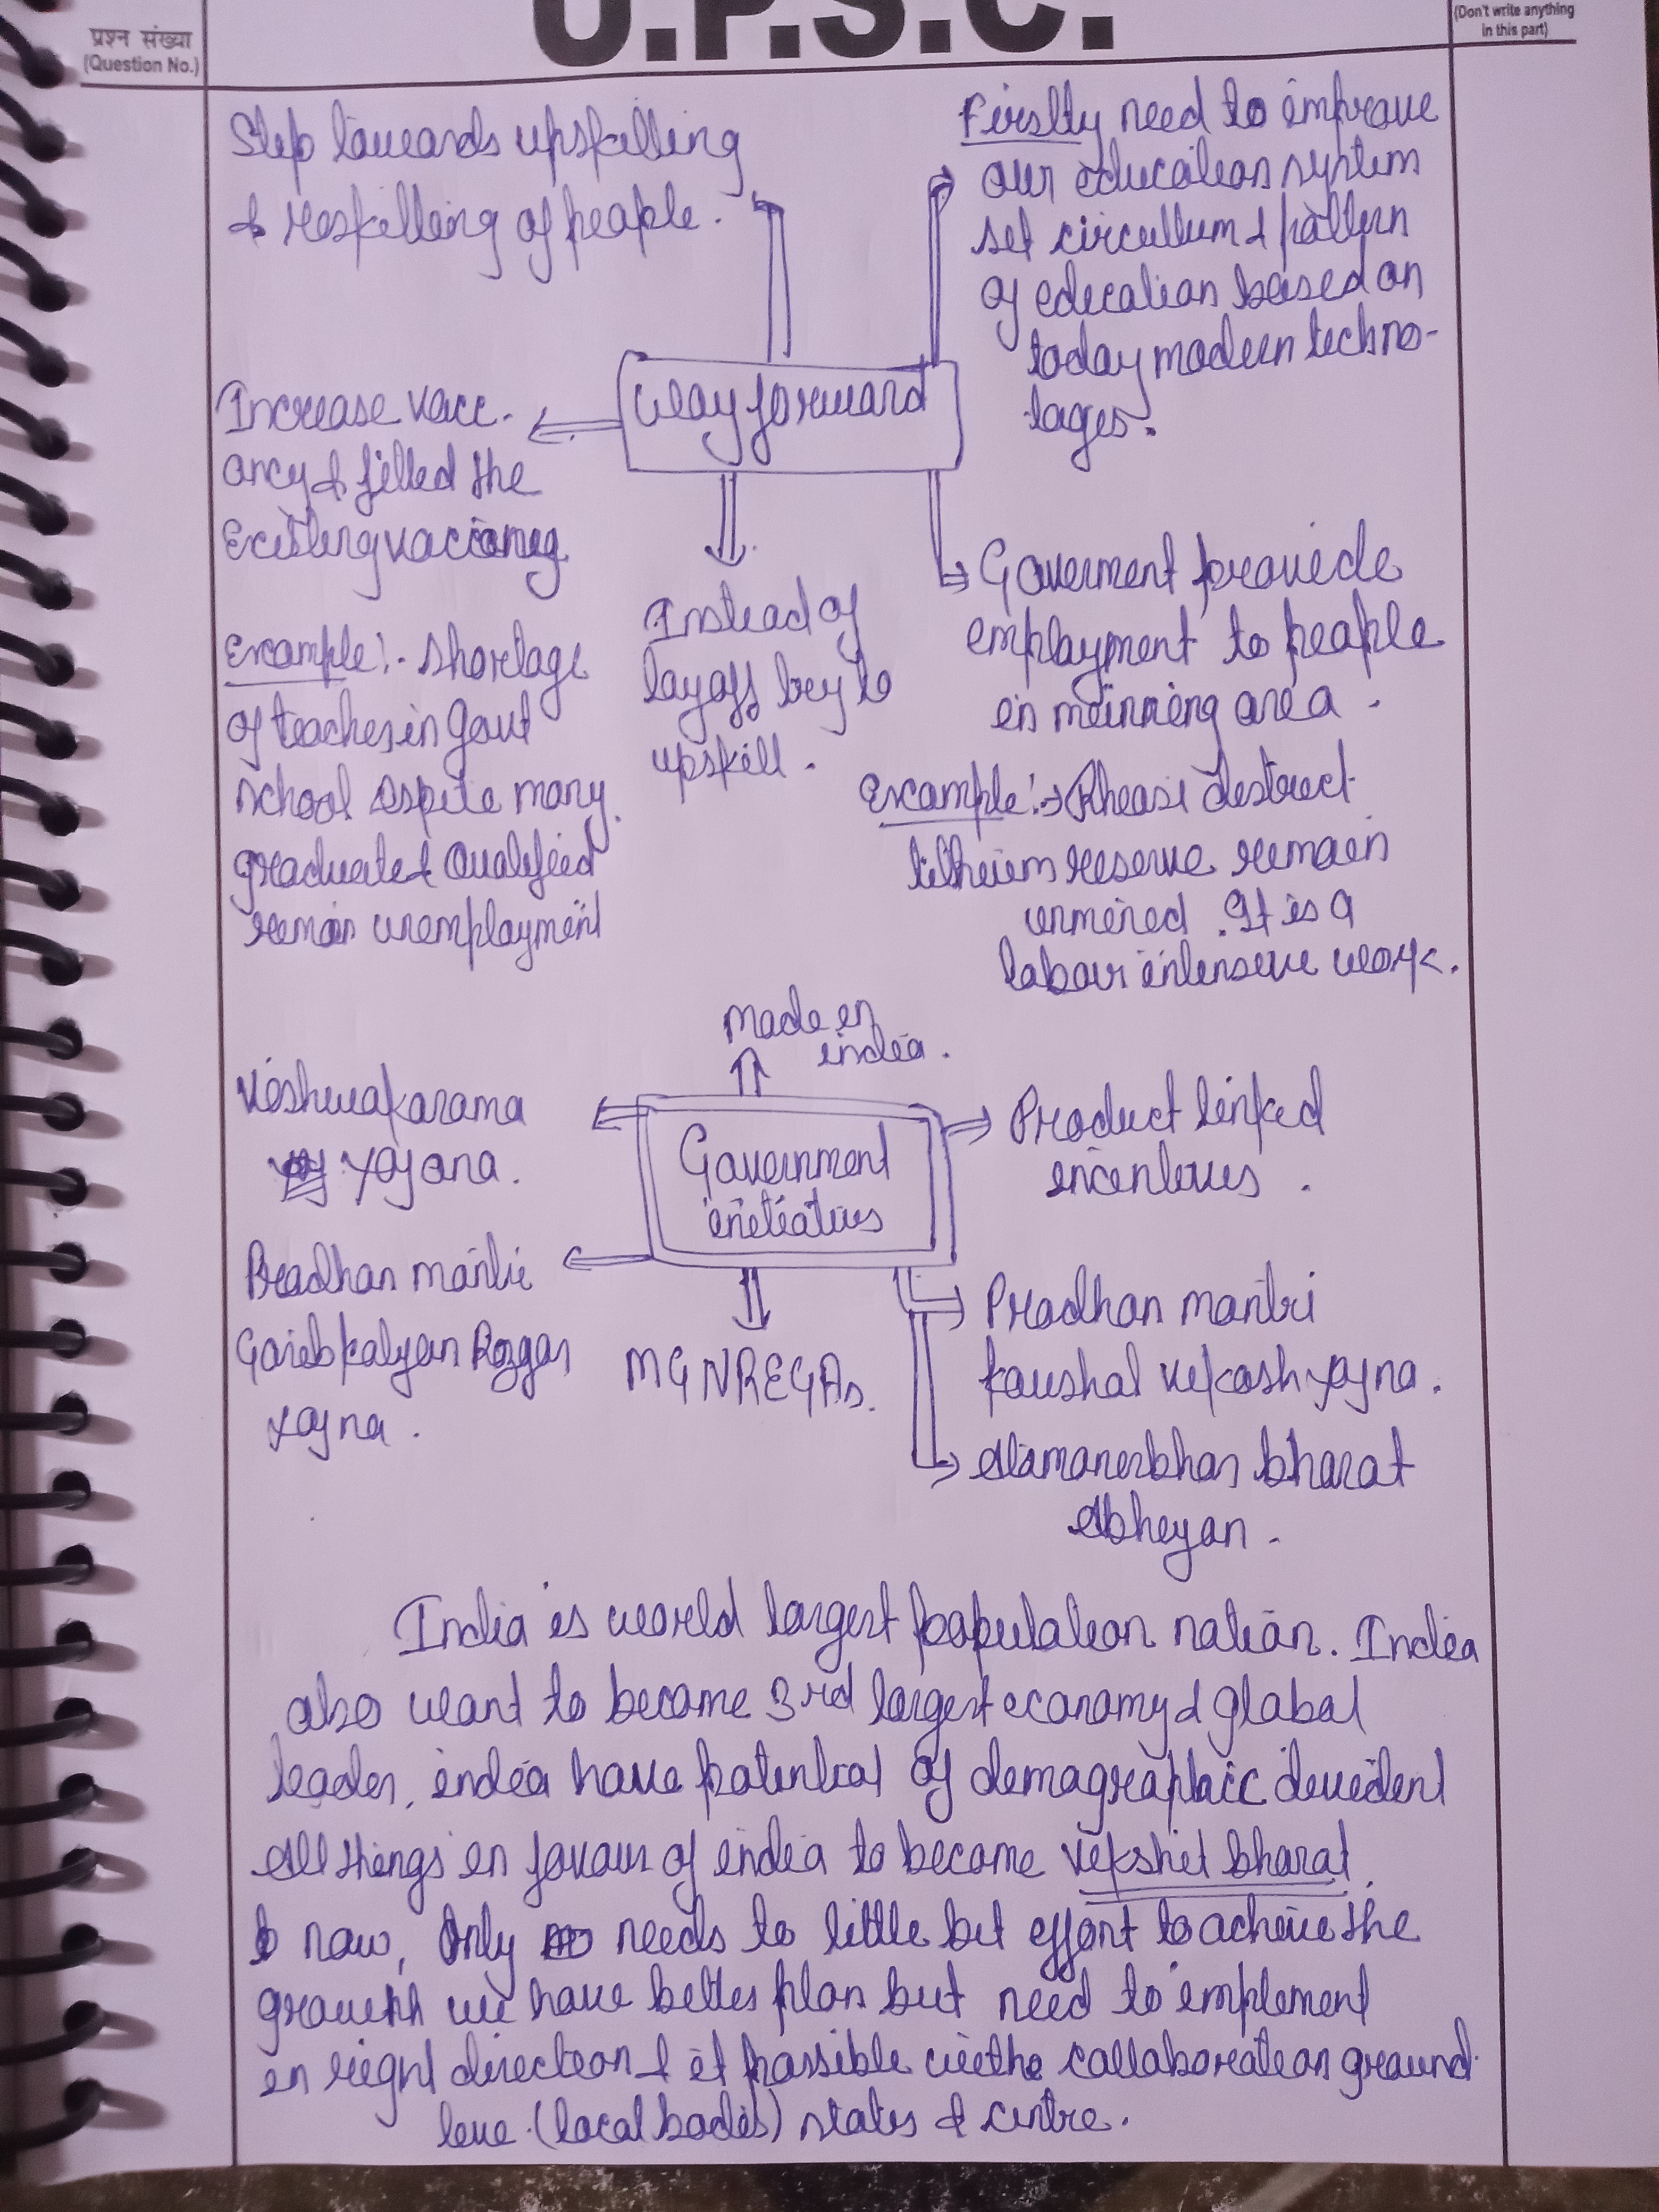 U.P.S.C.
प्रश्न संख्या
(Question No.)
(Don't write anything
in this part)
Step towards upskilling
& reskilling of people.
Firstly need to improve
our education system
set circullum & pattern
of education based on
today modern techno-
logies.
way forward
Increase vacc-
ancy & filled the
Existing vaccancy
Example:- Shortage
of teacher in Govt
school espite many
graduate & Qualified
remain unemployment
Instead of
layoff try to
upskill.
Goverment provide
employment to people
in mining area.
Example:→ Rheasi district
lithium reserve remain
unmined. It is a
labour intensive work.
made in
india.
Vishwakarama
Yojana.
Government
initiatives
Product linked
incentives.
Pradhan mantri
Garib kalyan Rozgar
Yojna.
MGNREGAs.
Pradhan mantri
kaushal vikash yojna.
Atamanirbhar bharat
Abhiyan.
India is world largest population nation. India
also want to become 3rd largest economy & global
leader. india have potential of demographic devident
All things in favour of india to become vikshit bharat.
now, Only needs to little bit effort to achieve the
growth we have better plan but need to implement
in right direction & it possible withe collaboration ground
leve (local bodies) states & centre.